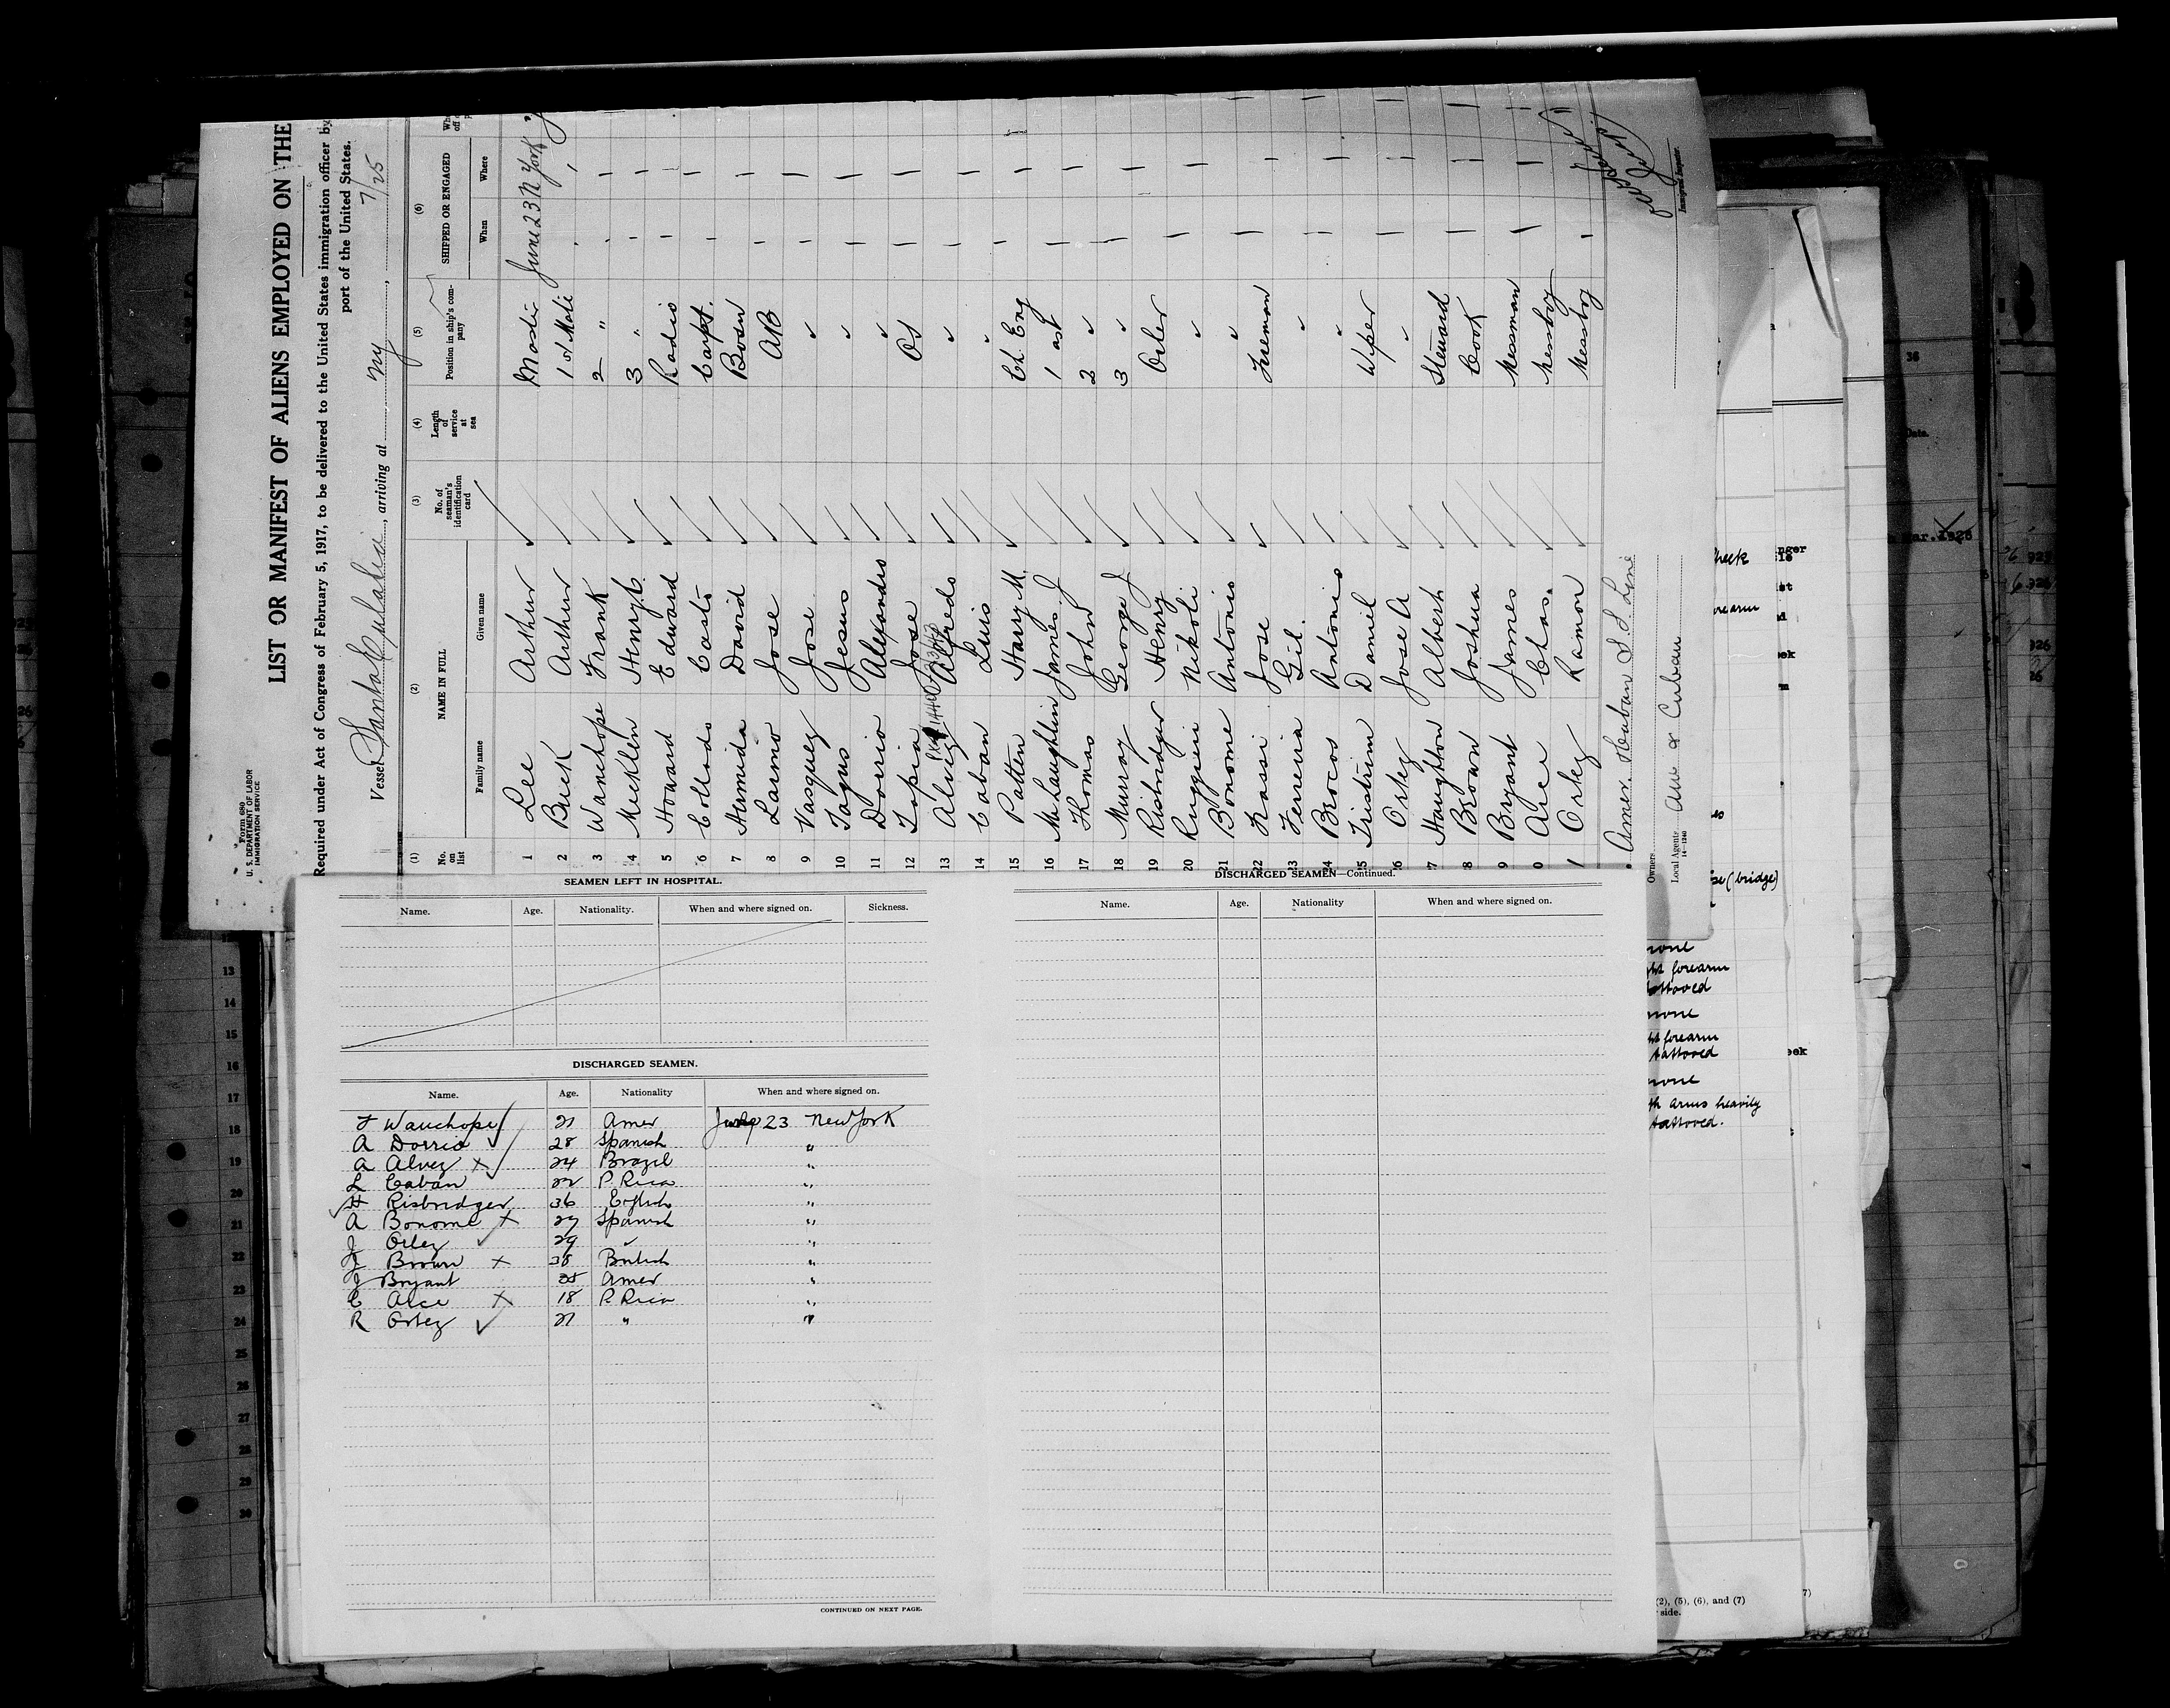 Form 680
U. S. DEPARTMENT OF LABOR
IMMIGRATION SERVICE
LIST OR MANIFEST OF ALIENS EMPLOYED ON THE
Required under Act of Congress of February 5, 1917, to be delivered to the United States immigration officer by
port of the United States.
Vessel Santa Eulalia, arriving at NY, 7/25
(1) No. on list (2) NAME IN FULL Family name Given name (3) No. of seaman's identification card (4) Length of service at sea (5) Position in ship's company (6) SHIPPED OR ENGAGED When Where
1 Lee Arthur Master June 23 N York
2 Buck Arthur 1st Mate
3 Wanchope Frank 2 "
4 Micklen Henry C. 3 "
5 Howard Edward Radio
6 Collado Casto Carpt.
7 Hermida David Bosun
8 Larino Jose AB
9 Vasquez Jose "
10 Tagus Jesus "
11 Dorrio Alexandro "
12 Topia Jose OS
13 Alvez Alfredo "
14 Caban Luis "
15 Patten Harry M. Ch Eng
16 McLaughlin James J 1 ast
17 Thomas John 2 "
18 Murray George J 3 "
19 Risbridger Henry Oiler
20 Nikoli "
21 Bonome Antonio "
22 Jose Fireman
23 Ferreria Gil. "
24 Brocos Antonio "
25 Tristrim Daniel Wiper
26 Ortez Jose A "
27 Haughton Albert Steward
28 Brown Joshua Cook
9 Bryant James Messman
0 Arce Chas. Messboy
1 Ortez Ramon Messboy
Owners Amer. Cuban S S Line
Local Agents Am & Cuban
14—1240
Immigrant Inspector.
SEAMEN LEFT IN HOSPITAL.
Name. Age. Nationality. When and where signed on. Sickness.
DISCHARGED SEAMEN.
Name. Age. Nationality When and where signed on.
F Wauchope 21 Amer June 23 New York
A Dorrio 28 Spanish "
A Alvez X 24 Brazil "
L Caban 22 P Rico "
H Risbridger 36 English "
A Bonome X 27 Spanish "
J Ortez 29 " "
J Brown X 38 British "
J Bryant 28 Amer "
C Arce X 18 P Rico "
R Ortez 21 " "
CONTINUED ON NEXT PAGE.
DISCHARGED SEAMEN—Continued.
Name. Age. Nationality When and where signed on.
13
14
15
16
17
18
19
20
21
22
23
24
25
26
27
28
29
30
36
cheek
forearm
(bridge)
none
forearm
tattooed
none
forearm
tattooed
none
arms heavily
tattooed.
(2), (5), (6), and (7)
side.